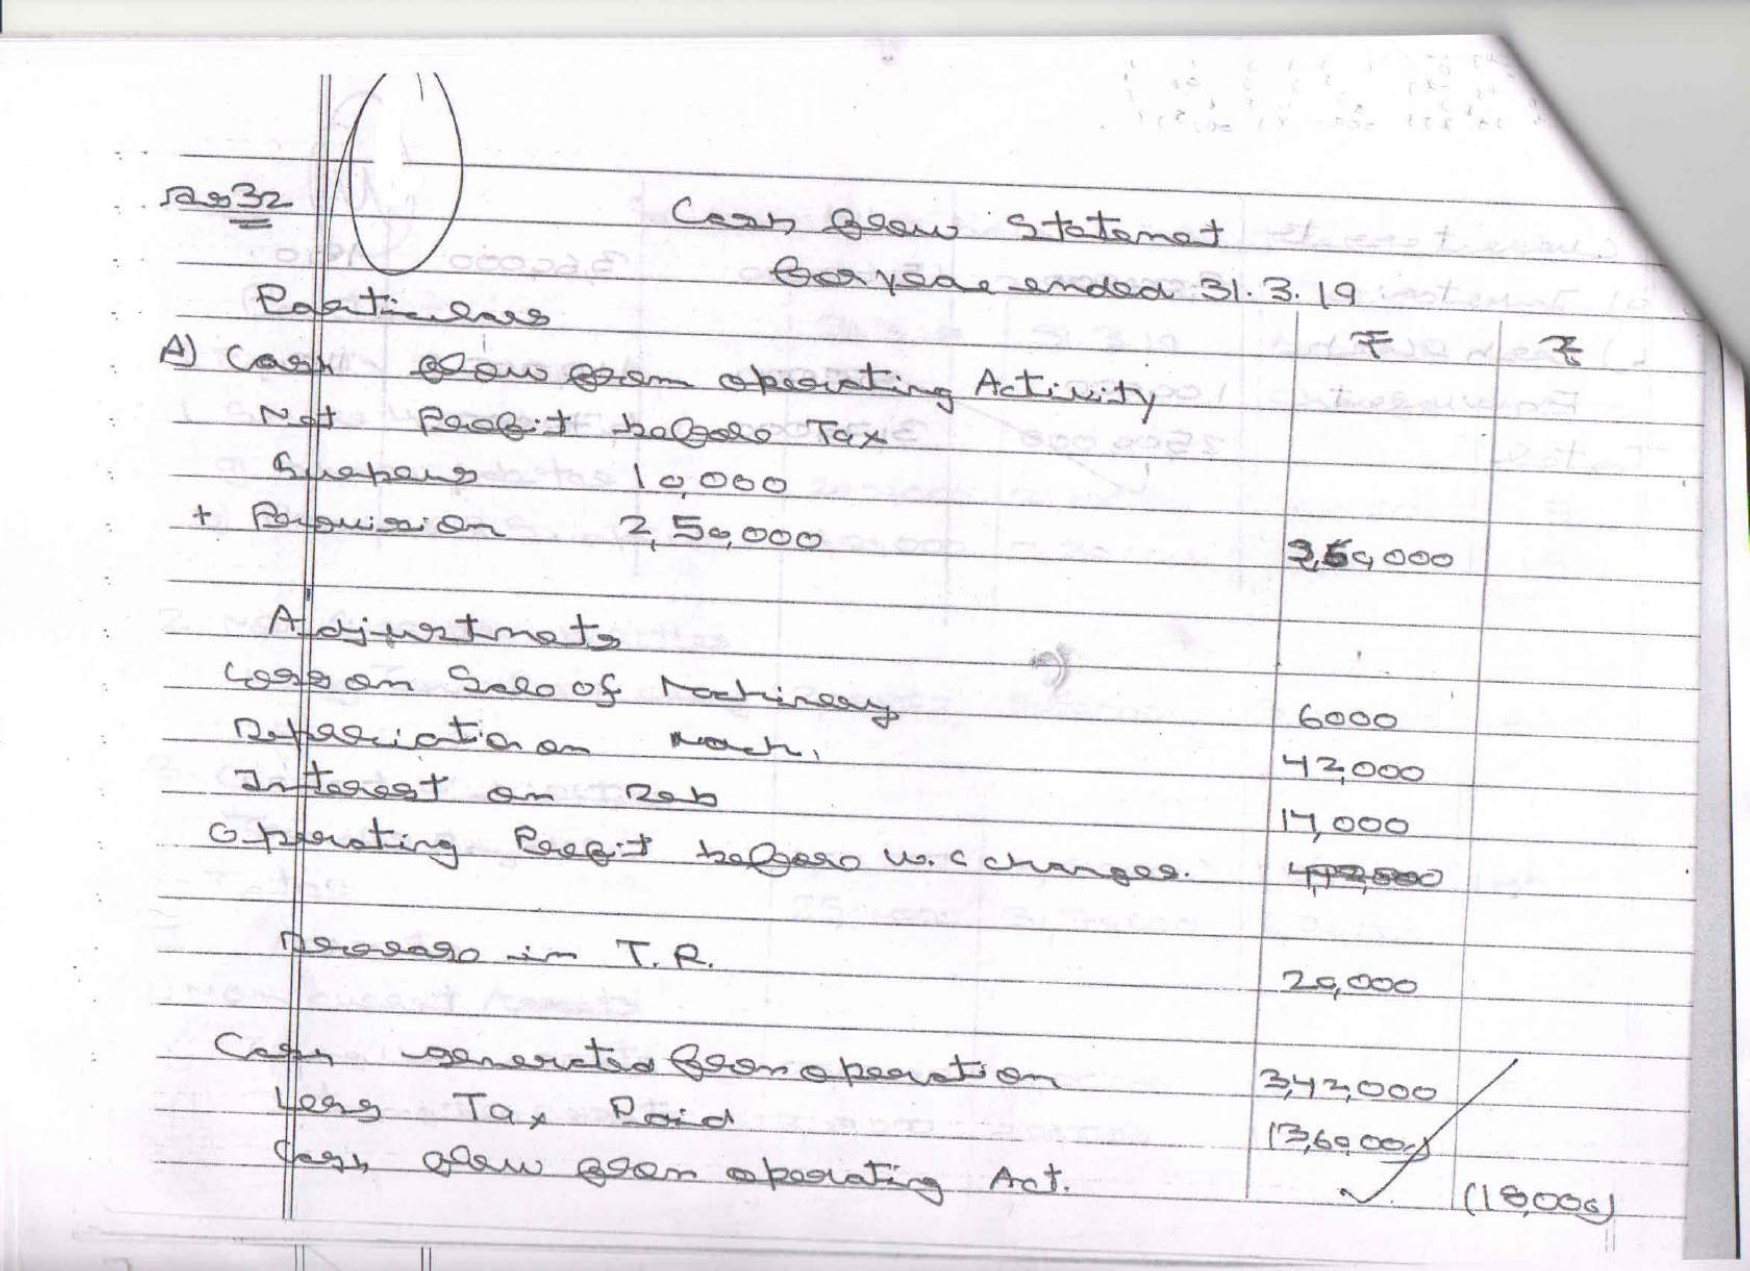 Ans 32
Cash flow Statemet
for year ended 31.3.19
Particulars ₹ ₹
A) Cash flow from operating Activity
Net Profit before Tax
Surplus 10,000
+ Provision 2,50,000 2,60,000
Adjustmets
Loss on Sale of Machinery 6000
Depreciation on Mach. 42,000
Interest on Deb 14,000
Operating Profit before w.c changes.
Decrease in T.R. 20,000
Cash generated from operation 3,42,000
Less Tax Paid (3,60,000)
Cash flow from operating Act. (18,000)